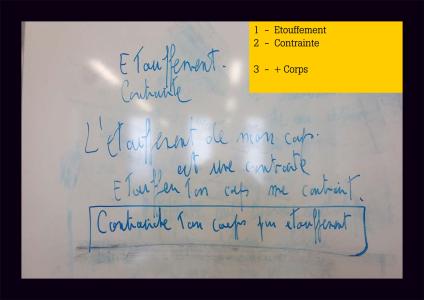 1 - Etouffement
2 - Contrainte
3 - + Corps
Etouffement.
Contrainte
L'étouffement de mon corps.
est une contrainte
Etouffer ton corps me contraint.
Contrainte ton corps qui étouffement